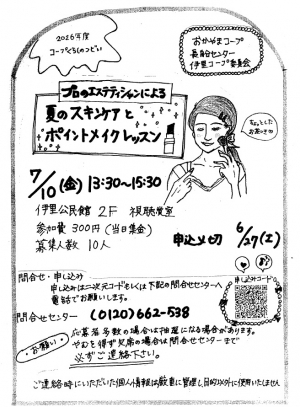 2026年度
コープくらしのつどい
おかやまコープ
長船センター
伊里コープ委員会
プロのエステティシャンによる
夏のスキンケアと
ポイントメイクレッスン
ちょっとした
お茶つき
7/10(金) 13:30〜15:30
伊里公民館 2F 視聴覚室
参加費 300円(当日集金)
募集人数 10人
申込〆切 6/27(土)
申し込みコード
問合せ・申し込み
申し込みは二次元コードもしくは下記の問合せセンターへ
電話でお願いします。
問合せセンター (0120)662-538
お願い
応募者多数の場合は抽選になる場合があります。
やむを得ず欠席の場合は問合せセンターまで
必ずご連絡下さい。
ご連絡時にいただいた個人情報は厳重に管理し目的以外に使用いたしません